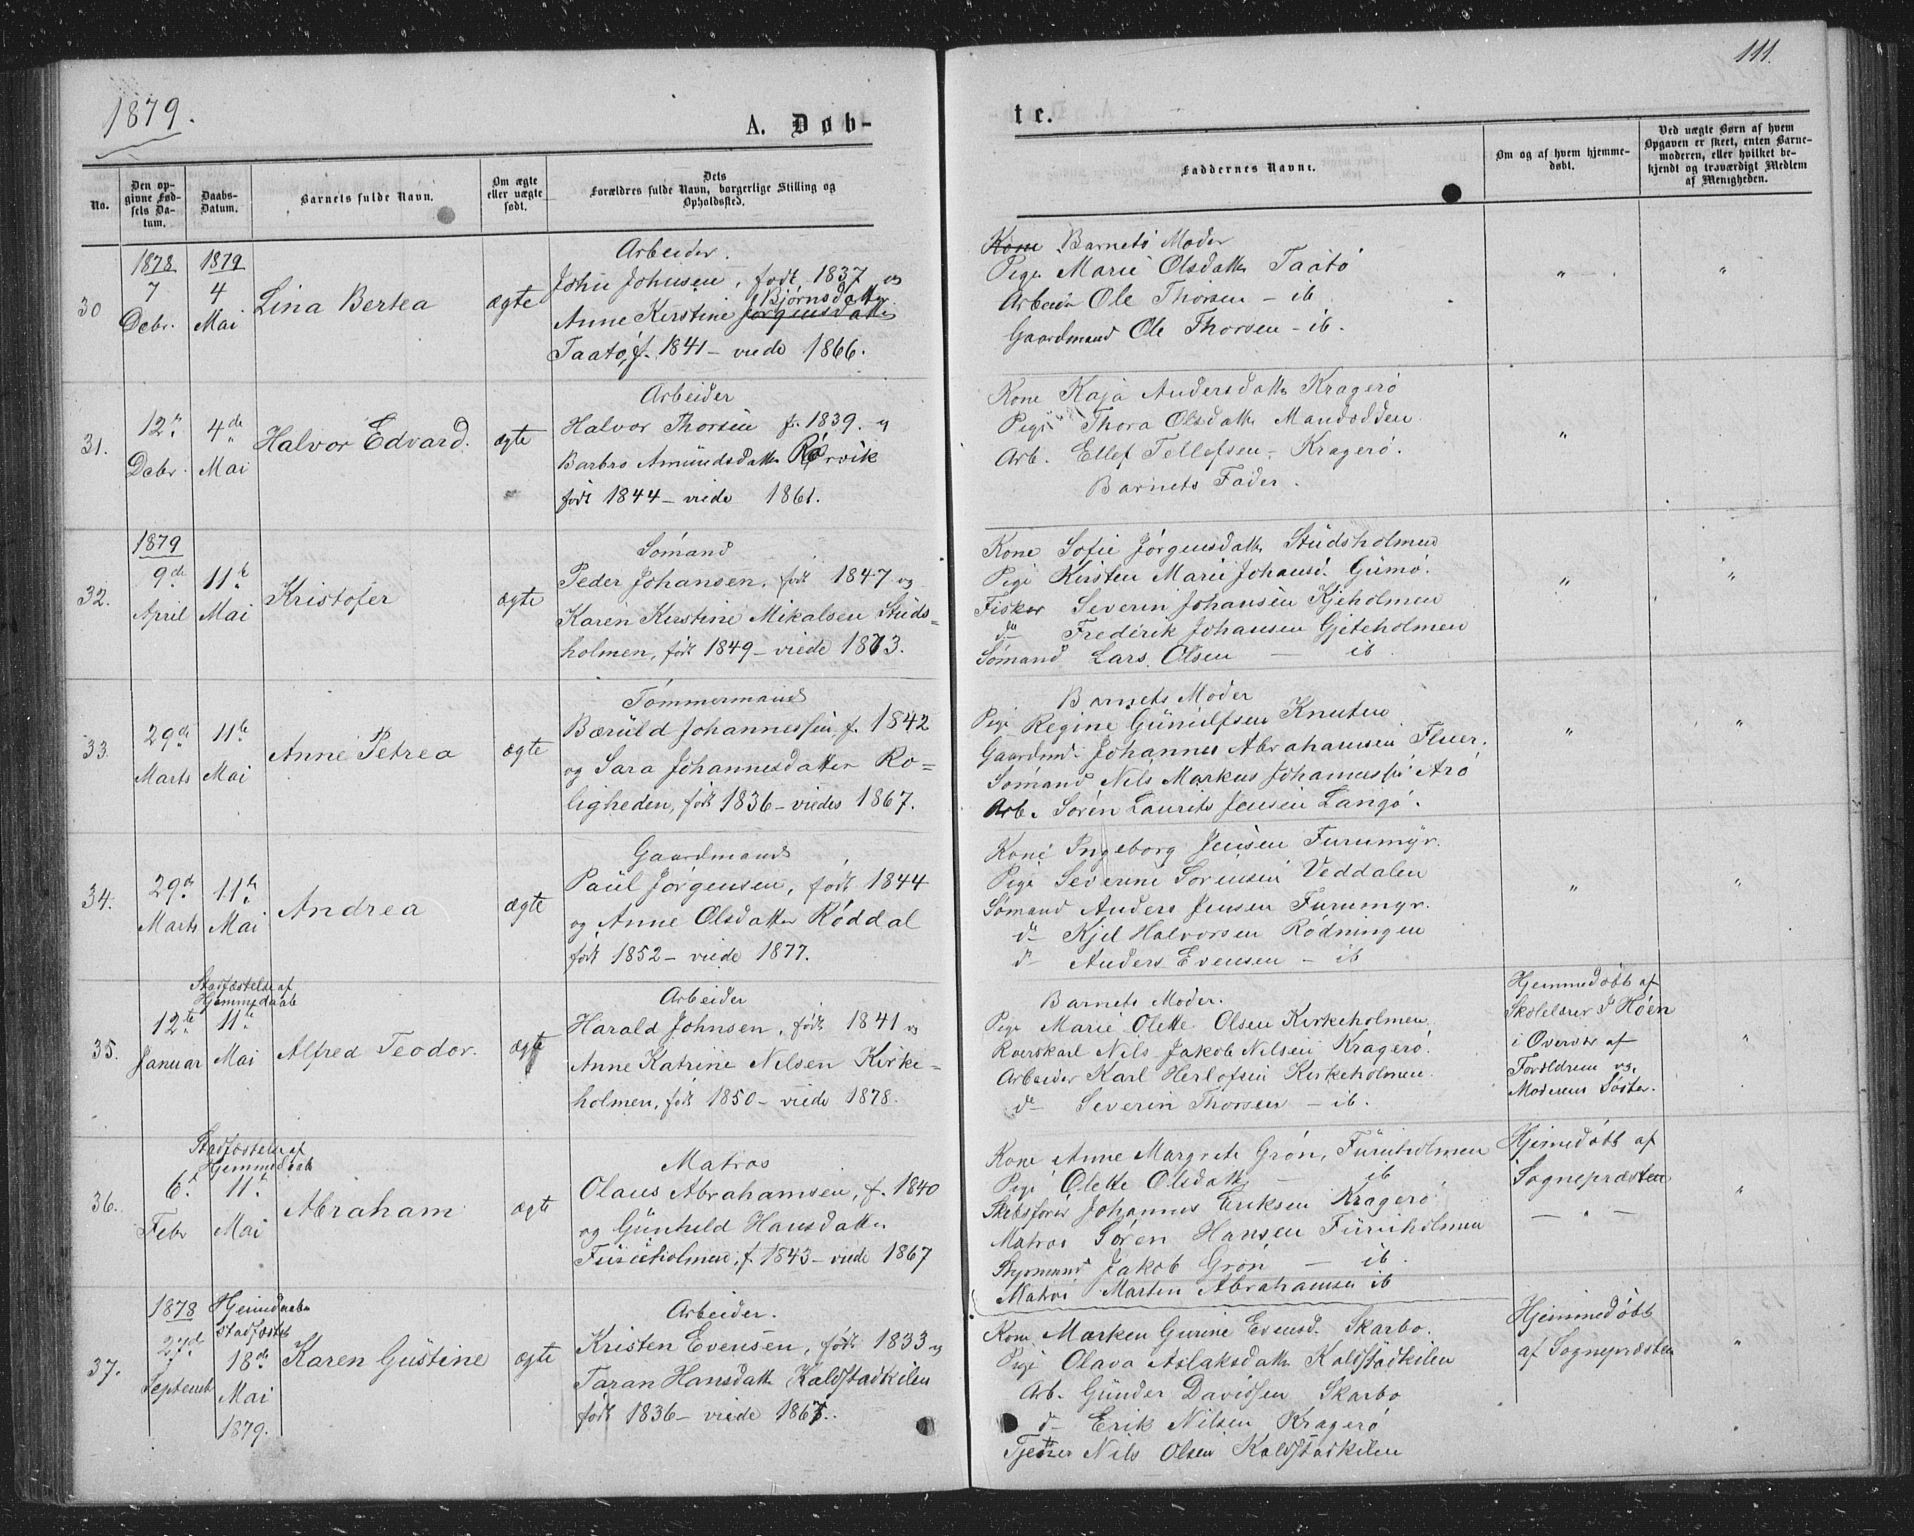 1879.
111.
A. Døb-
te.
No.
Den op-
givne Fød-
sels Da-
tum.
Daabs-
Datum.
Barnets fulde Navn.
Om ægte
eller uægte
født.
Dets
Forældres fulde Navn, borgerlige Stilling og
Opholdssted.
Faddernes Navne.
Om og af hvem hjemme-
døbt.
Ved uægte Børn af hvem
Opgaven er skeet, enten Barne-
moderen, eller hvilket be-
kjendt og troværdigt Medlem
af Menigheden.
30
1878
7
Debr.
1879
4
Mai
Lina Bertea
ægte
Arbeider.
John Johnsen, født 1837 og
Bjørnsdatter
Anne Kerstine Jørgensdatter
Taatø, f. 1841 – viede 1866.
Kone Barnets Moder
Pige Marie Olsdatter Taatø
Arbeider Ole Thorsen – ib
Gaardmand Ole Thorsen – ib.
"
"
31.
12te
Debr.
4de
Mai
Halvor Edvard.
ægte
Arbeider
Halvor Thorsen f. 1839. og
Barbro Amundsdatter Rørvik
født 1844 – viede 1861.
Kone Kaja Andersdatter Kragerø
Pige Thora Olsdatter Mandodden
Arb. Ellef Tellefsen, Kragerø.
Barnets Fader.
"
32.
1879
9de
April
11te
Mai
Kristofer
ægte
Sømand
Peder Johansen, født 1847 og
Karen Kerstine Mikalsen Studs=
holmen, født 1849 – viede 1873.
Kone Sofie Jørgensdatter Studsholmen
Pige Kirsten Marie Johansd. Gumø.
Fisker Severin Johansen Kjeholmen
do Frederik Johansen Gjeteholmen
Sømand Lars Olsen – ib
"
"
33.
29de
Marts
11te
Mai
Anne Petrea
ægte
Tømmermand
Bæruld Johannessen f. 1842
og Sara Johannesdatter Ro=
ligheden, født 1836 – viedes 1867.
Barnets Moder
Pige Regine Gunulfsen Knuten
Gaardmd. Johannes Abrahamsen Fluer.
Sømand Nils Markus Johannessen Arø
Arb. Søren Laurits Jensen Langø.
"
"
34.
29de
Marts
11te
Mai
Andrea
ægte
Gaardmand
Paul Jørgensen, født 1844
og Anne Olsdatter Røddal
født 1852 – viede 1877.
Kone Ingeborg Jensen Furumyr.
Pige Severine Sørensen Veddalen
Sømand Anders Jensen Furumyr.
do Kjel Halvorsen Rødningen
do Anders Evensen – ib
"
"
35.
12te
Januar
Stadfæstelse af
Hjemmedaab
11te
Mai
Alfred Teodor.
ægte
Arbeider
Harald Johnsen, født 1841 og
Anne Katrine Nilsen Kirke=
holmen, født 1850 – viede 1878.
Barnets Moder.
Pige Marie Olette Olsen Kirkeholmen
Roerskarl Nils Jakob Nilsen Kragerø.
Arbeider Karl Herlofsen Kirkeholmen.
do Severin Thorsen – ib.
Hjemmedøbt af
Skolelærer P Høen
i Overvær af
Forældrene og
Moderens Søster.
"
36.
6te
Febr
Stadfæstelse af
Hjemmedaab
11te
Mai
Abraham
ægte
Matros
Olaus Abrahamsen, f. 1840
og Gunhild Hansdatter
Furuholmen, f. 1843 – viede 1867
Kone Anne Margrete Grøn, Furuholmen
Pige Olette Olsdatter – ib
Skibsfører Johannes Eriksen Kragerø
Matros Søren Hansen Furuholmen
Styrmand Jakob Grøn – ib.
Matros Marten Abrahamsen ib
Hjemmedøbt af
Sognepræsten
– " –
"
37.
1878
27de
Septembr
Hjemmedaaben
stadfæstet
18de
Mai
1879.
Karen Gustine
ægte
Arbeider.
Kristen Evensen, født 1833 og
Taran Hansdatter Kalvstadkilen
født 1836 – viede 1867.
Kone Marken Gurine Evensd. Skarbo.
Pige Olava Aslaksdatter Kalvstadkilen
Arb. Gunder Davidsen Skarbo
do Erik Nilsen Kragerø
Tjener Nils Olsen Kalvstadkilen
Hjemmedøbt
af Sognepræsten
"